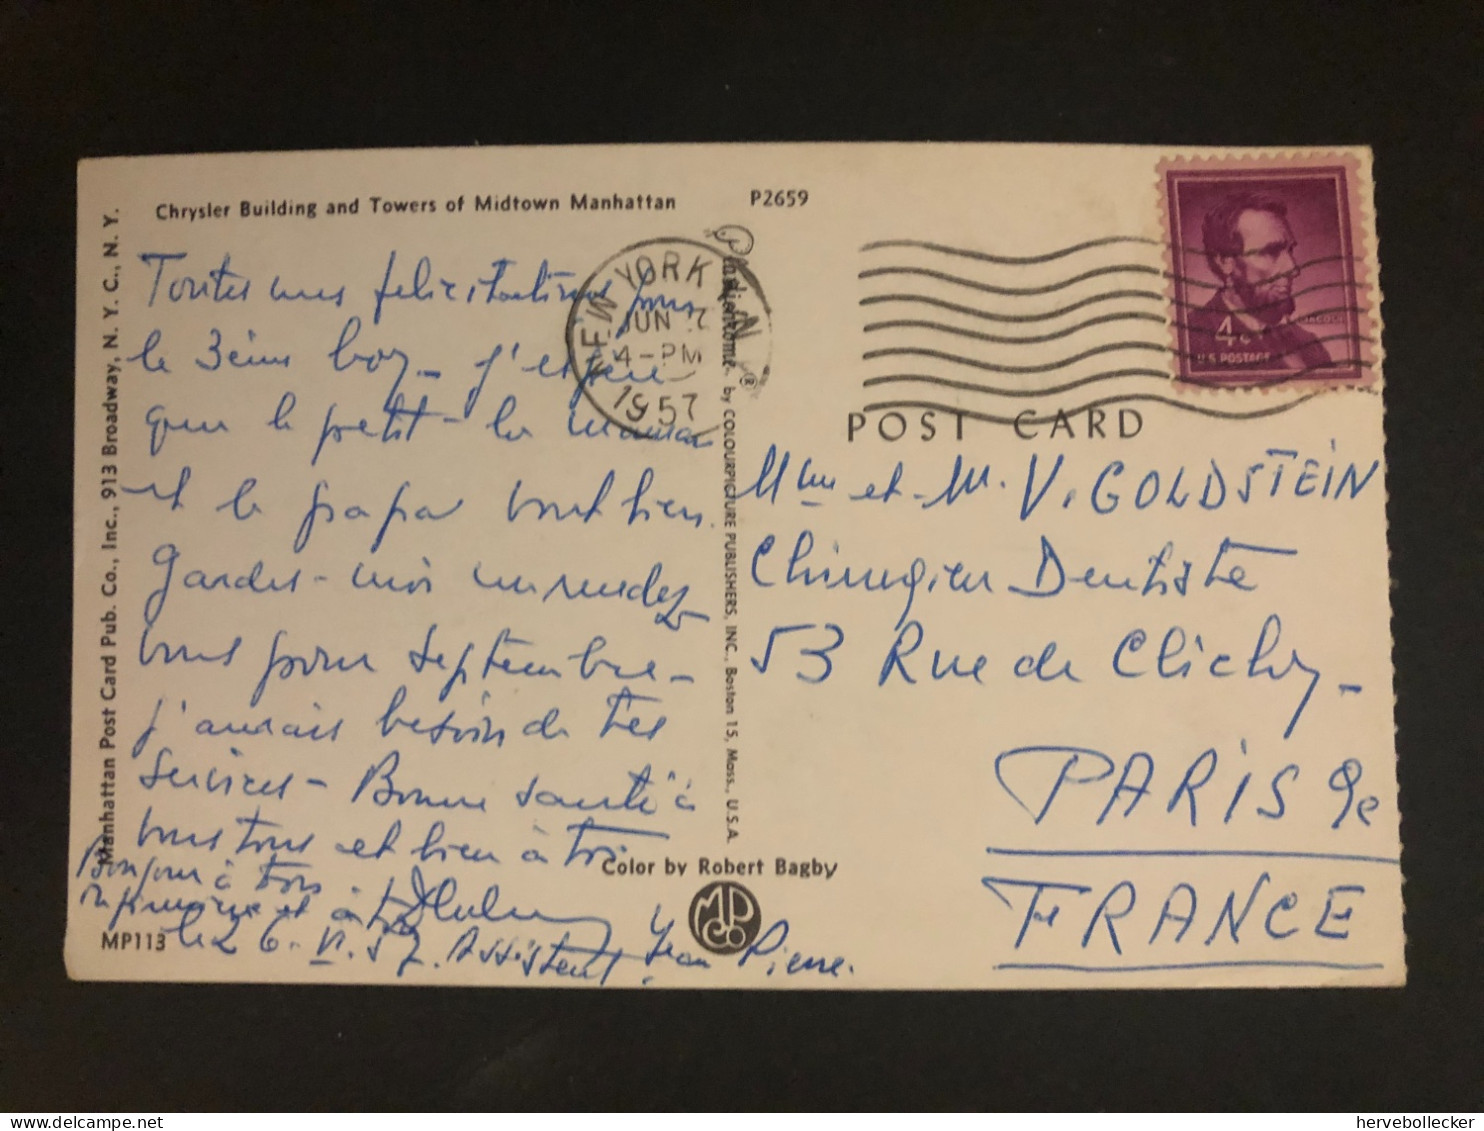 Chrysler Building and Towers of Midtown Manhattan
P2659
Manhattan Post Card Pub. Co., Inc., 913 Broadway, N. Y. C., N. Y.
Toutes mes felicitations pour
le 3ème boy - j'espère
que le petit - la maman
et le papa vont bien.
Gardes-moi un rendez
vous pour septembre -
j'aurais besoin de tes
services - Bonne santé à
vous tous et bien à toi
Bonjour à tous
et à
le 26. VI. 57. Assistent Jean Pierre.
MP113
NEW YORK, N.Y.
JUN
4-PM
1957
Plastichrome® by COLOURPICTURE PUBLISHERS, INC., Boston 15, Mass., U.S.A.
Color by Robert Bagby
MPCo
LINCOLN
4c
U.S. POSTAGE
POST CARD
Mme et M. V. GOLDSTEIN
Chirurgien Dentiste
53 Rue de Clichy -
PARIS 9e
FRANCE
hervebollecker